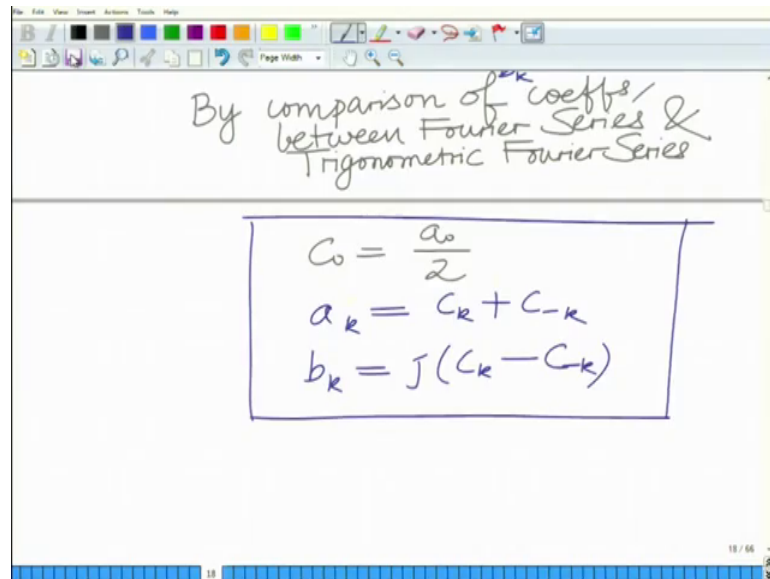 File Edit View Insert Actions Tools Help
B I
Page Width
By comparison of coeffs/
between Fourier Series &
Trigonometric Fourier Series
C₀ = a₀/2
aₖ = Cₖ + C₋ₖ
bₖ = j(Cₖ − C₋ₖ)
18 / 66
18